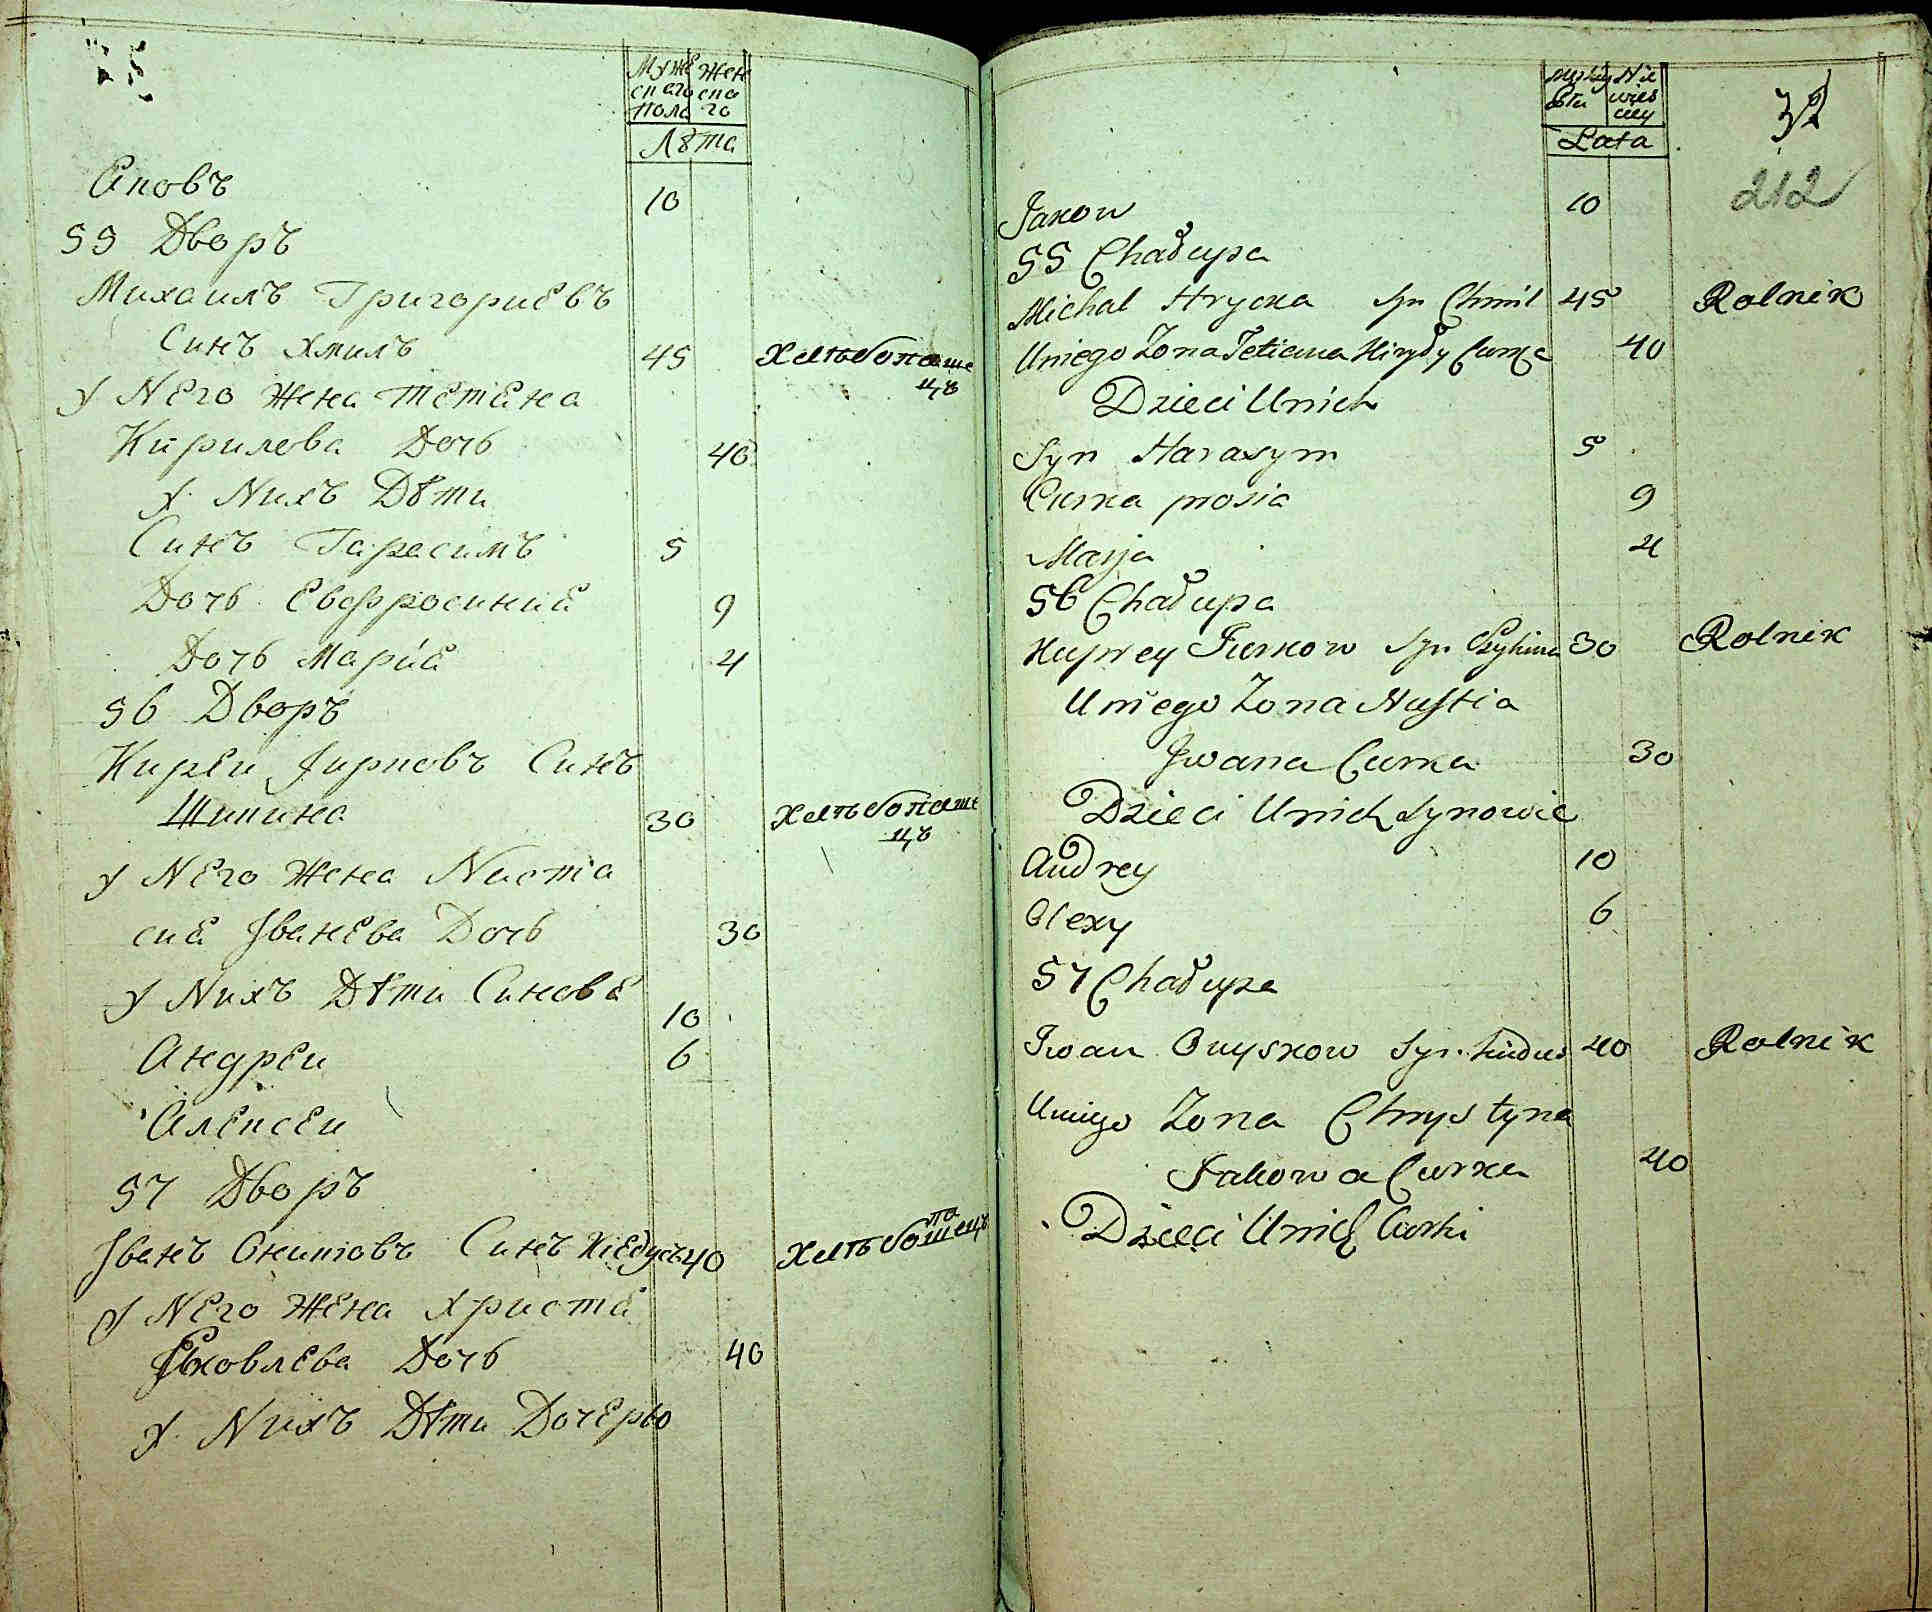 Муже Жен
скаго ска
пола го
Лѣта
Яковъ 10
55 Дворъ
Михаилъ Григориевъ
Синъ Хмилъ 45 Хлѣбопаше
цъ
У Него Жена Тетяна
Кирилова Дочь 40
У Нихъ Дѣти
Синъ Гарасимъ 5
Дочь Евфросиния 9
Дочь Мария 4
56 Дворъ
Кирѣи Юрковъ Синъ
30 Хлѣбопаше
цъ
У Него Жена Nаста
сия Іванева Дочь 30
У Нихъ Дѣти Синовя
10
Андрѣи 6
Алексѣи
57 Дворъ
Іванъ Синъ 40 Хлѣбопашецъ
У Него Жена Христя
Яковлева Дочь 40
У Нихъ Дѣти Дочерью
Nie
wies
Lata
32
212
Jakow 10
55 Chałupa
Michał Hrycka Syn Chmil 45 Rolnik
Uniego Zona Tetiana Curka 40
Dzieci Unich
Syn Harasym 5
Curka prosia 9
Marja 4
56 Chałupa
Jurkow Syn 30 Rolnik
Uniego Zona Nastia
Iwana Curka 30
Dzieci Unich Synowie
Andrey 10
Olexy 6
57 Chałupa
Iwan Onyskow Syn 40 Rolnik
Uniego Zona Chrystyna
Jakowa Curka 40
Dzieci Unich Curki